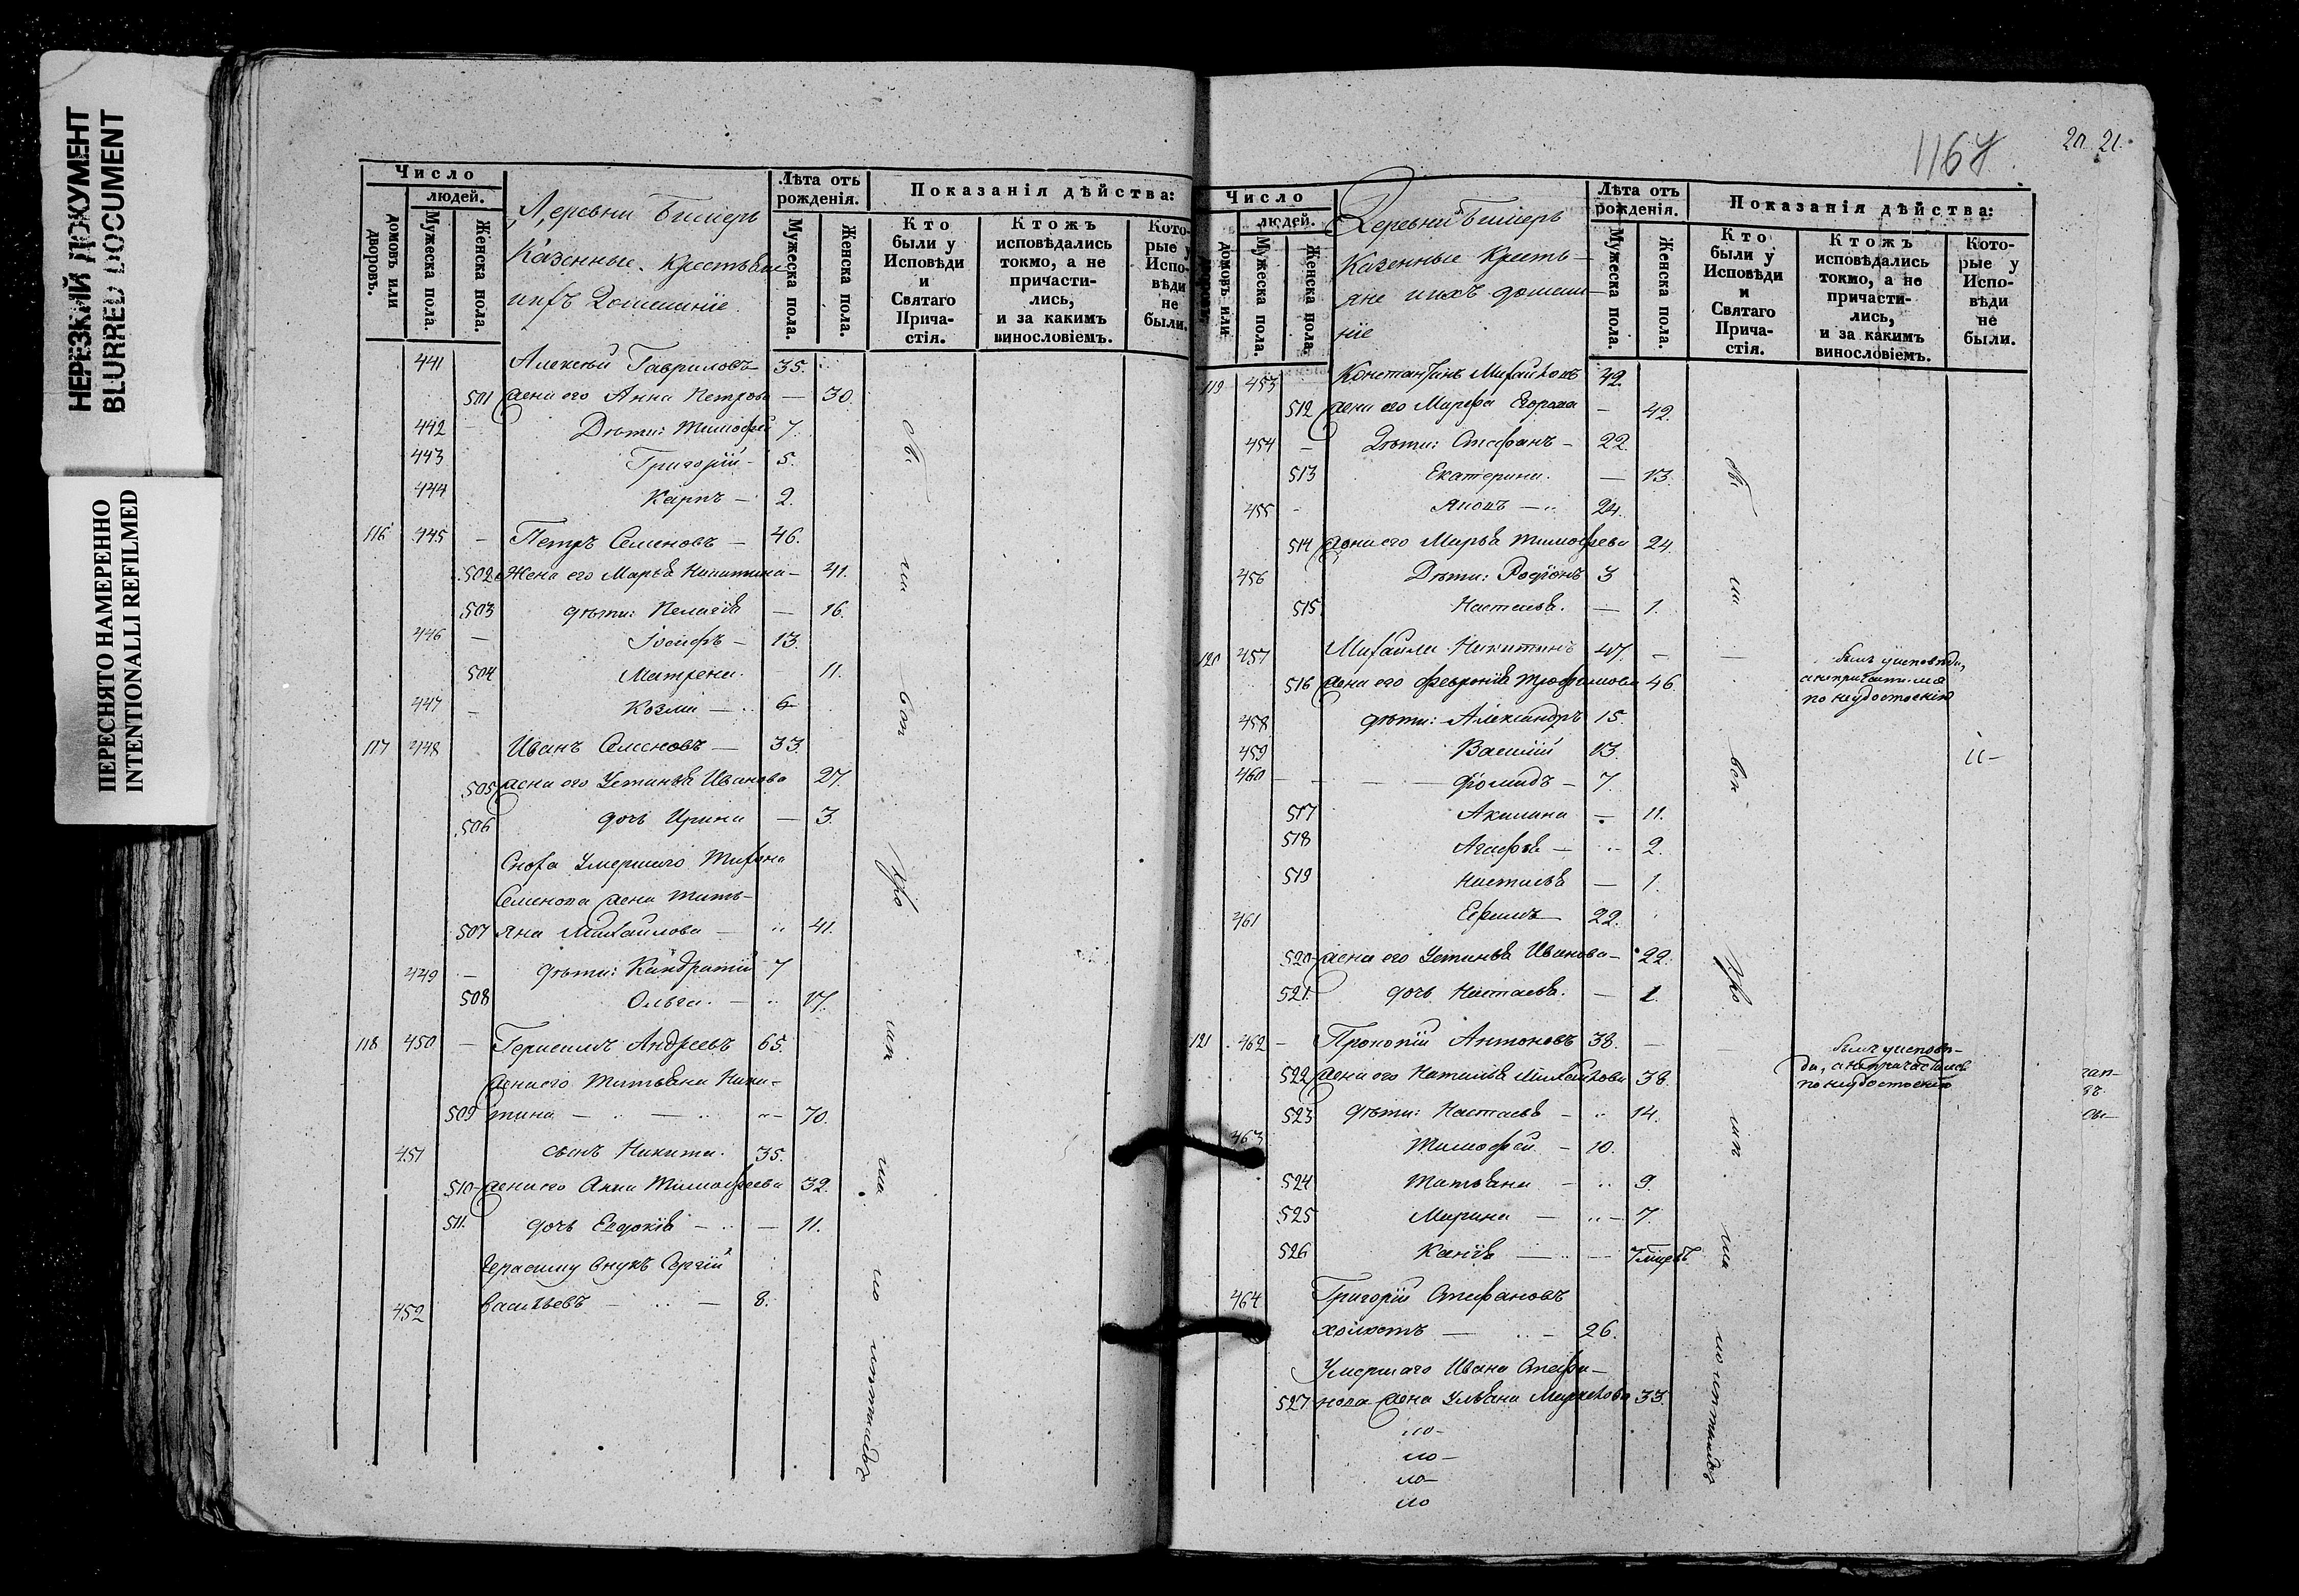 НЕРЕЗКИЙ ДОКУМЕНТ
BLURRED DOCUMENT
ПЕРЕСНЯТО НАМЕРЕННО
INTENTIONALLI REFILMED
Число
людей.
домовъ или дворовъ.
Мужеска пола.
Женска пола.
Деревни Бимеръ
Казенные Крестьяне
ихъ Домашніе.
Лѣта отъ рожденія.
Мужеска пола
Женска пола.
Показанія дѣйства:
Кто были у Исповѣди и Святаго Прича-стія.
Ктожъ исповѣдались токмо, а не причасти-лись, и за какимъ винословіемъ.
Кото-рые у Испо-вѣди не были.
441 Алексѣй Гавриловъ 35.
501 жена его Анна Петрова — 30.
442 — Дѣти: Тимофей 7.
443 Григорій — 5.
444 Карпъ — 2.
116 445 — Петръ Семеновъ — 46.
502 Жена его Марья Никитина — 41.
503 дѣти: Пелагія — 16.
446 — Іосифъ — 13.
504 Матрена. 11.
447 — Козма — 6
117 448 Иванъ Семеновъ — 33
505 жена его Устинья Иванова 27.
506 дочь Ирина — 3.
Сноха умершаго
Семенова жена Тать-
507 яна Михайлова — 41.
449 — дѣти: Кондратій 7
508 Ольга. — 17.
118 450 — Герасимъ Андреевъ 65.
жена его Татьяна Ники-
509 тина — 70.
451 сынъ Никита. 35.
510 жена его Анна Тимофеева 32.
511. дочь Евдокія — 11.
Герасиму внукъ Сергій
452 Васильевъ — 8.
1167
20 21.
Число
людей.
домовъ или
Мужеска пола.
Женска пола.
Деревни Бимеръ
Казенные Кресть-
яне ихъ домаш-
ніе
Лѣта отъ рожденія.
Мужеска пола.
Женска пола.
Показанія дѣйства:
Кто были у Исповѣди и Святаго Прича-стія.
Ктожъ исповѣдались токмо, а не причасти-лись, и за каким винословіемъ.
Кото-рые у Испо-вѣди не были.
119 453 Константинъ Михайловъ 42.
512 жена его Марфа Егорова — 42.
454 — Дѣти: Стефанъ — 22.
513 Екатерина. — 13.
455 — Яковъ — 24.
514 жена его Марья Тимофеева 24.
456 Дѣти: Родіонъ 3
515 Настасья. — 1.
120 457 Михаилъ Никитинъ 47. —
былъ у исповѣди,
а не причастился
по недостоенію
516 жена его Февронія Трофимова 46.
458 дѣти: Александръ 15.
459 Василій 13.
460 — Диомидъ — 7.
517 Акилина — 11.
518 Агафья — 2.
519 Настасья — 1.
461 Ефимъ — 22.
520 жена его Устинья Иванова — 22.
521. дочь Настасья. — 1.
121 462 — Прокопій Антоновъ 38. —
былъ у исповѣ-
ди, а не причастился
по недостоенію
522 жена его Наталья Михайлова 38.
523 дѣти: Настасья — 14.
463 Тимофей — 10.
524 Татьяна — 9.
525 Марина — 7.
526 —
464 Григорій Стефановъ
холостъ — 26.
Умершаго Ивана Стефа-
527 нова жена Ульяна 33.